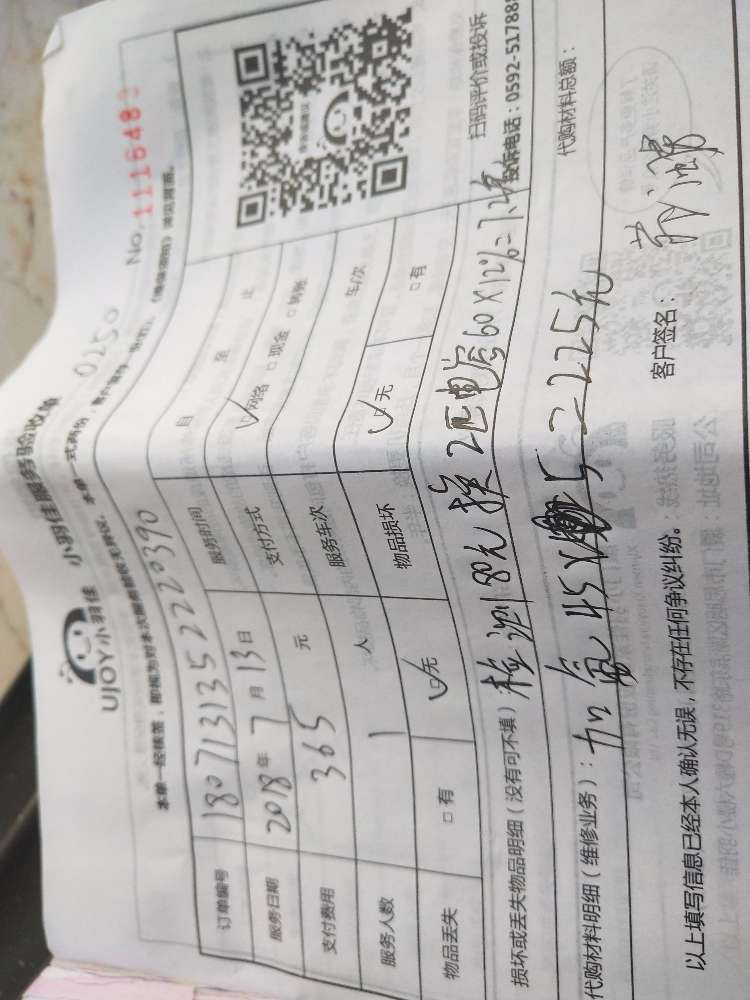 UJOY小羽佳 小羽佳服务验收单 0250
本单一经核签，即视为对本次服务验收无异议。本单一式两份，客户留存一份
No.1116483
订单编号 180713135222039​0
服务时间 自 至 止
服务日期 2018年7月13日
支付方式 网络 现金 转账
支付费用 365 元
服务车次 车/次
服务人数 1 人
物品损坏 无 有
物品丢失 有 无
扫码评价或投诉
投诉电话：0592-517889
损坏或丢失物品明细（没有可不填） 检测80元 换2匹电容60X12%=
代购材料明细（维修业务）： 加氟45X5=225元
代购材料总额：
以上填写信息已经本人确认无误，不存在任何争议纠纷。
客户签名：